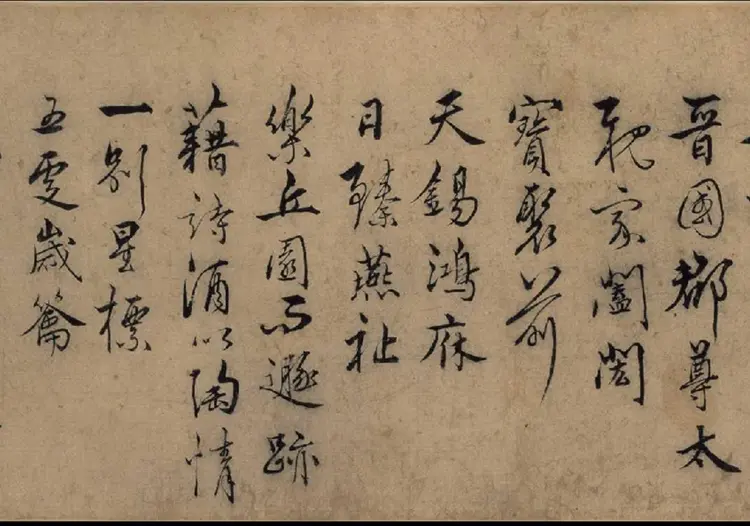 晉國都尊太
親家闔
寶聚前
天錫鴻庥
日臻燕祉
樂丘園而遯跡
藉詩酒以陶情
一別星標
五更歲籥